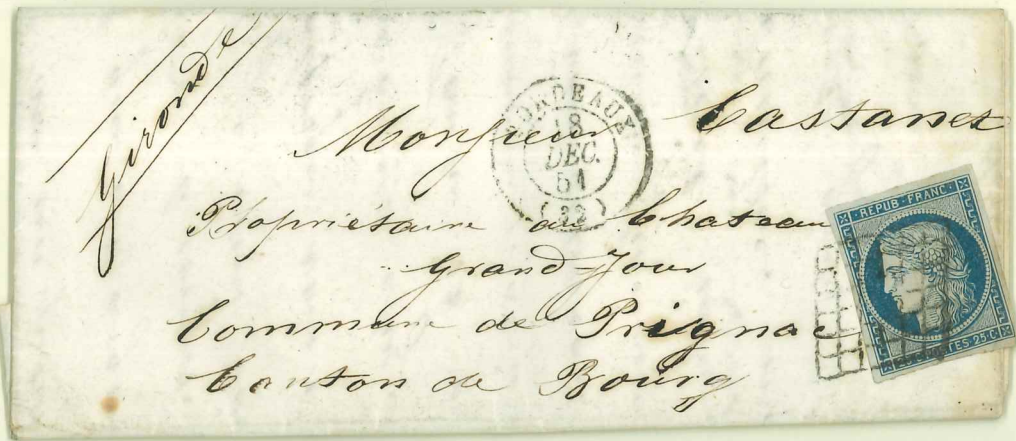 Gironde
BORDEAUX
18
DEC.
51
(32)
Monsieur Castanet
Propriétaire au Chateau
Grand-Jour
Commune de Prignac
Canton de Bourg
REPUB·FRANC·
25·C·